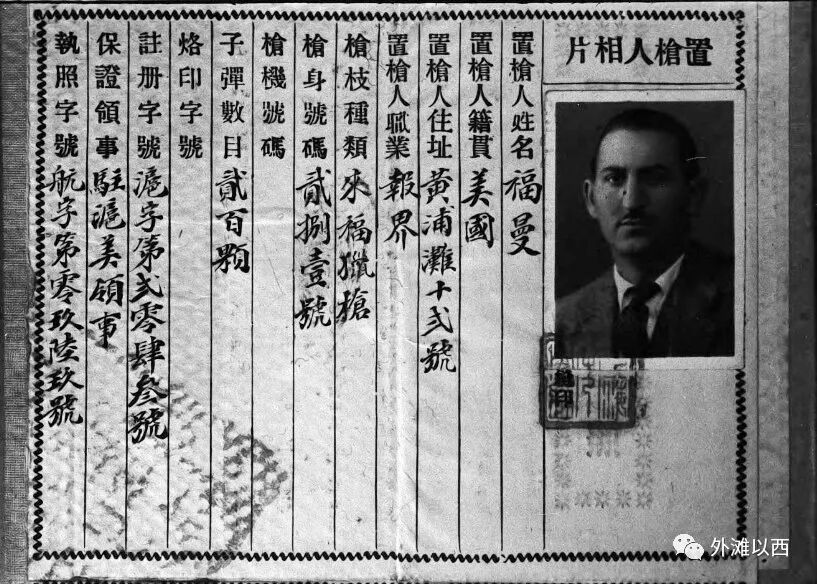 置槍人相片
置槍人姓名福曼
置槍人籍貫美國
置槍人住址黃浦灘十弍號
置槍人職業報界
槍枝種類來福獵槍
槍身號碼貳捌壹號
槍機號碼
子彈數目貳百顆
烙印字號
註册字號滬字第弍零肆叁號
保證領事駐滬美領事
執照字號航字第零玖陸玖號
外滩以西